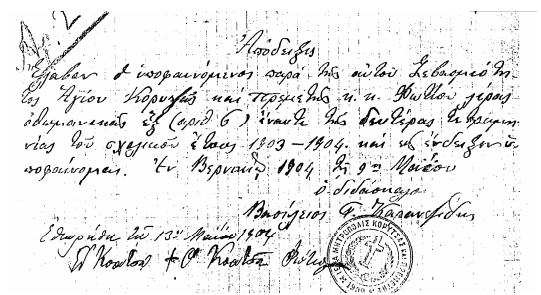 Ἀπόδειξις
Ἔλαβον ὁ ὑποφαινόμενος παρὰ τῆς αὐτοῦ Σεβασμιότη
τος Ἁγίου Κορυτσᾶς καὶ Πρεμετῆς κ. κ. Φωτίου λίρας
ὀθωμανικὰς ἓξ (ἀριθ 6) ἔναντι τῆς δευτέρας τετραμη
νίας τοῦ σχολικοῦ ἔτους 1903-1904. καὶ εἰς ἔνδειξιν ὑ
ποφαίνομαι. Ἐν 1904 τῇ 9ῃ Μαΐου
ὁ διδάσκαλος
Βασίλειος Γ.
Ἐθεωρήθη τῇ 13ῃ Μαΐου 1904